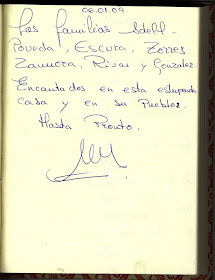 06.01.09.
Las familias Sdehl-
Poveda, Escura, Torres
Zamora, Rivas y Gonzalez
Encantados en esta estupenda
casa y en su Pueblo.
Hasta Pronto.